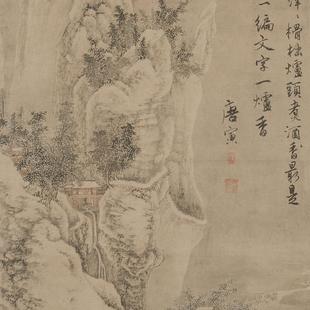 榾柮爐頭煮酒香最是
一編文字一爐香
唐寅